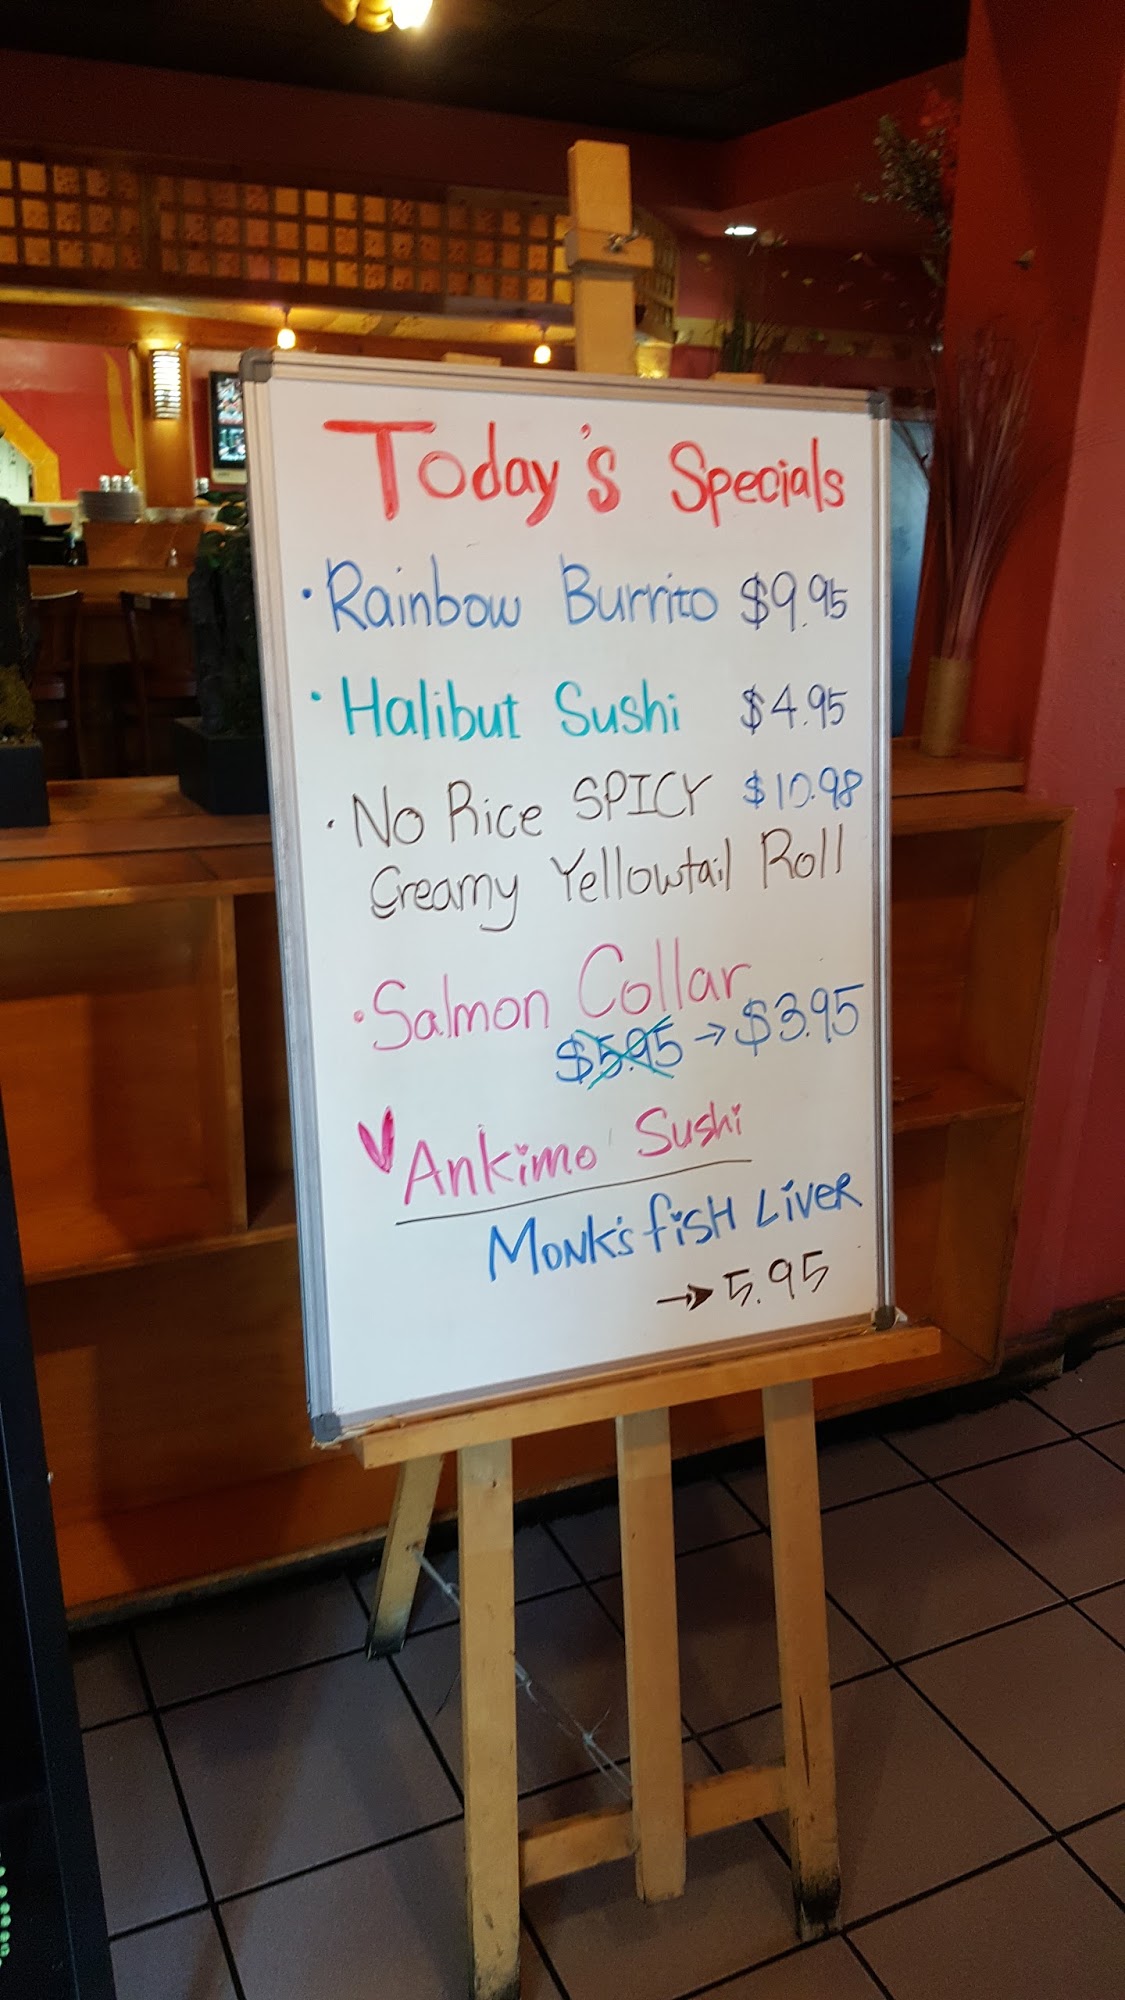 Today's Specials
· Rainbow Burrito $9.95
· Halibut Sushi $4.95
· No Rice SPICY $10.98
Creamy Yellowtail Roll
· Salmon Collar
$5.95 → $3.95
Ankimo Sushi
Monk's fisH LiveR
→ 5.95